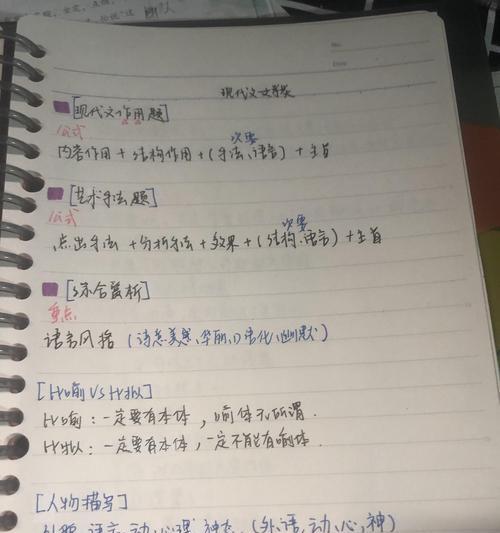 No.
Date
现代文文学类
[现代文作用题]
公式
次要
内容作用 + 结构作用 + (手法、语言) + 主旨
[艺术手法题]
公式
次要
点出手法 + 分析手法 + 效果 + (结构、语言) + 主旨
[综合赏析]
重点
语言风格 (诗意美感、华丽、口语化、幽默)
[比喻 VS 比拟]
比喻:一定要有本体,喻体无所谓.
比拟:一定要有本体,一定不能有喻体.
[人物描写]
外貌、语言、动、心理、神态 (外、语、动、心、神)